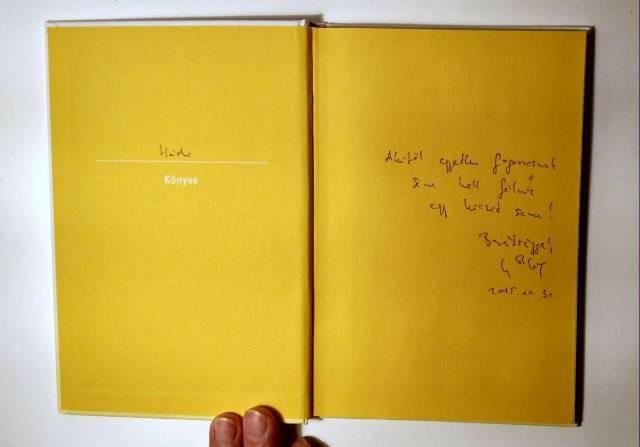 Könyve
Akitől egyetlen gonosznak
sem kell félnie
egy kicsit sem!
Barátsággal,
2015. 10. 30.